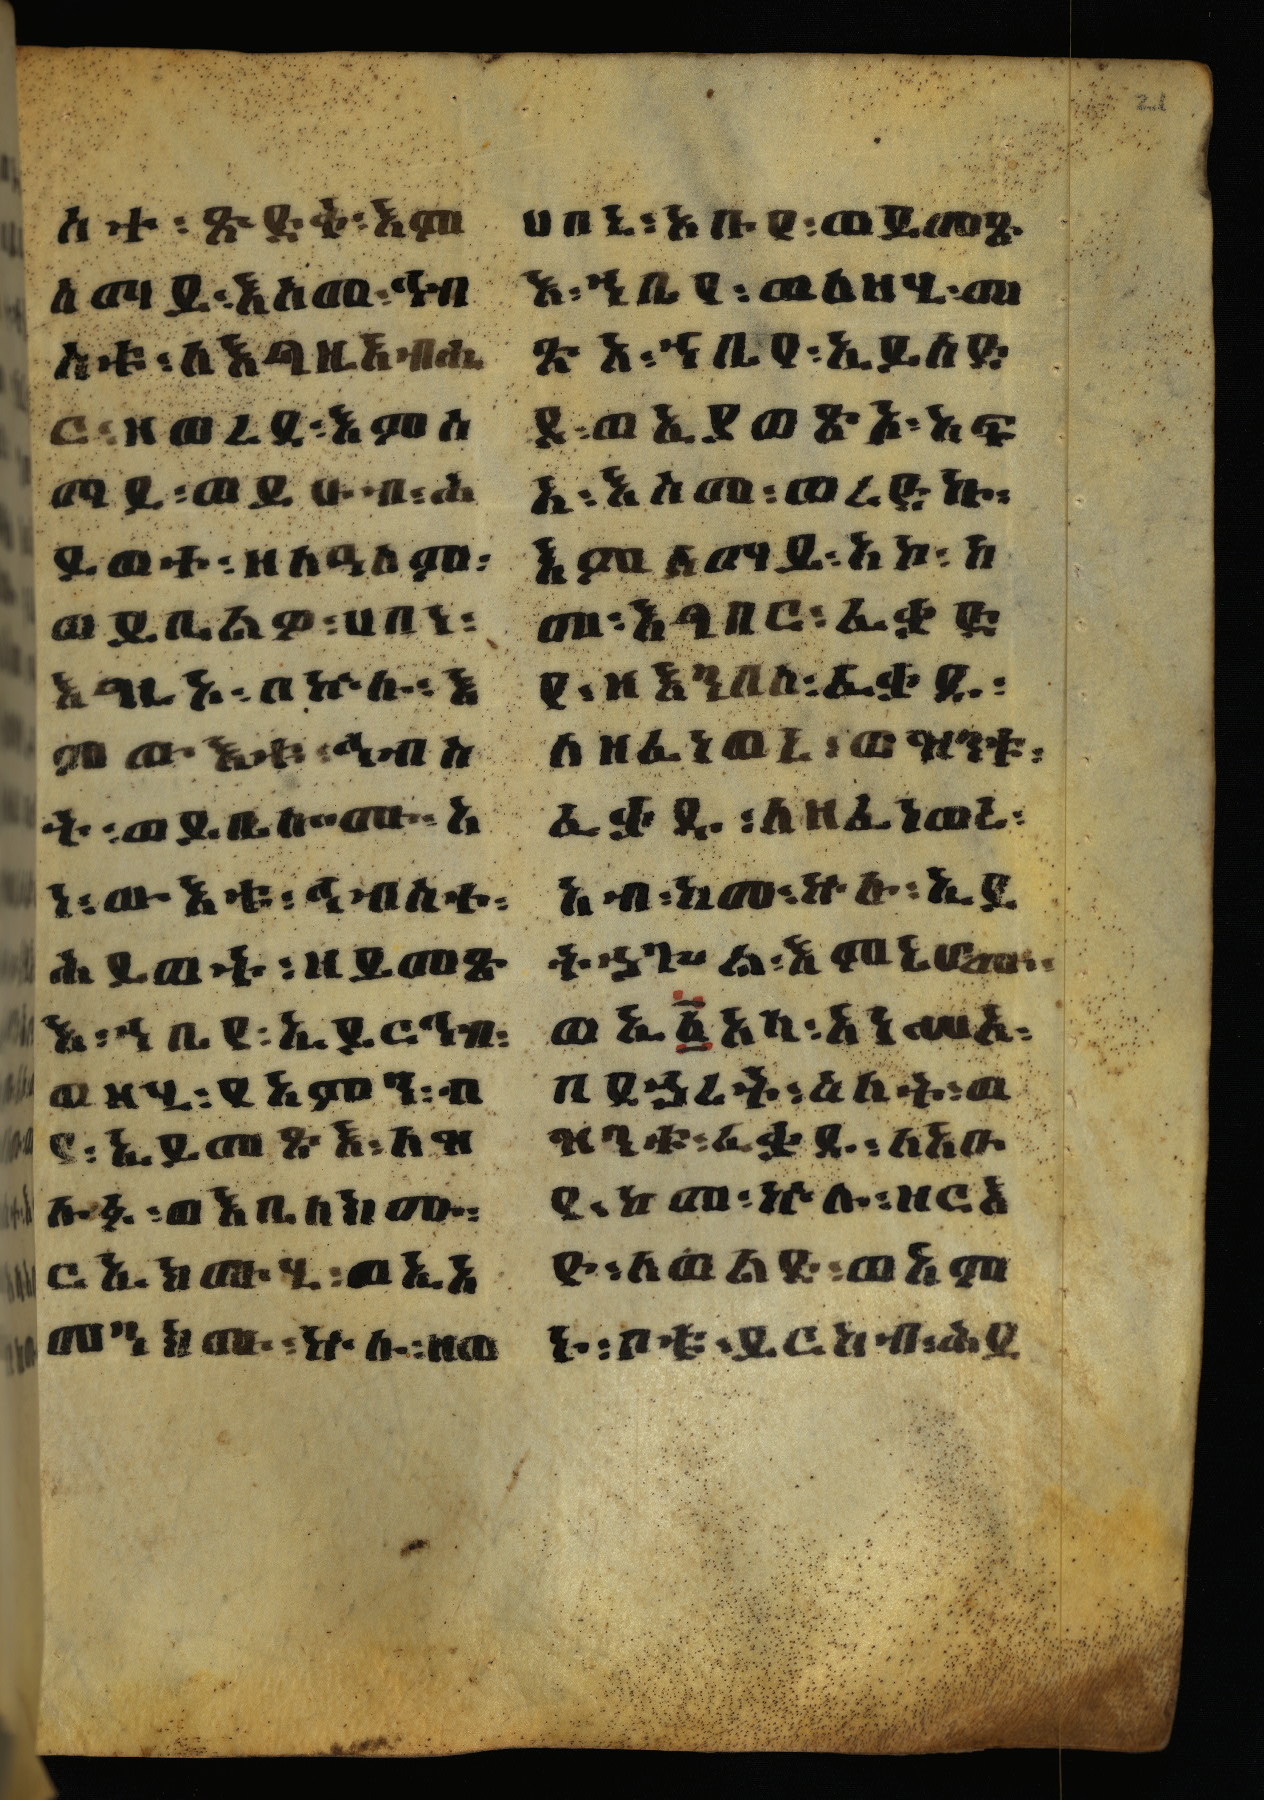 ለተ፡ጽድቅ፡እም
ሰማይ፡እስመ፡ኅብ
ስቱ፡ለእግዚአብሔ
ር፡ዘወረደ፡እምሰ
ማይ፡ወይሁብ፡ሕ
ይወተ፡ለዓለም፡
ወይቤልዎ፡ሀበነ፡
እግዚእ፡በኵሉ፡እ
ምውእቱ፡ኅብስ
ት፡ወይቤሎሙ፡አ
ነ፡ውእቱ፡ኅብስተ፡
ሕይወት፡ዘይመጽ
እ፡ኀቤየ፡ኢይርኅብ፡
ወዘሂ፡የአምን፡ብ
የ፡ኢይመጽእ፡ለዝ
ሉፉ፡ወእቤለክሙ፡
ርኢክሙሂ፡ወኢአ
መንክሙ፡ኵሉ፡ዘወ
ሀበኒ፡አቡየ፡ወይመጽ
እ፡ኀቤየ፡ወለዘሂ፡መ
ጽአ፡ኀቤየ፡ኢይሰድ
ዶ፡ወኢያወጽእ፡አፍ
አ፡እስመ፡ወረድኩ፡
እምሰማይ፡አኮ፡ከ
መ፡እግበር፡ፈቃድ
የ፡ዘእንበለ፡ፈቃዱ፡
ለዘፈነወኒ፡ወዝንቱ፡
ፈቃዱ፡ለዘፈነወኒ፡
አብ፡ከመ፡ኵሉ፡ኢይ
ትኃጐል፡እምኔሆሙ፡
ወኢ፩እከ፡አነሥእ፡
በደኃሪት፡ዕለት፡ወ
ዝንቱ፡ፈቃዱ፡ለአቡ
የ፡ከመ፡ኵሉ፡ዘርእ
ዮ፡ለወልድ፡ወአም
ነ፡ቦቱ፡ይርከብ፡ሕይ